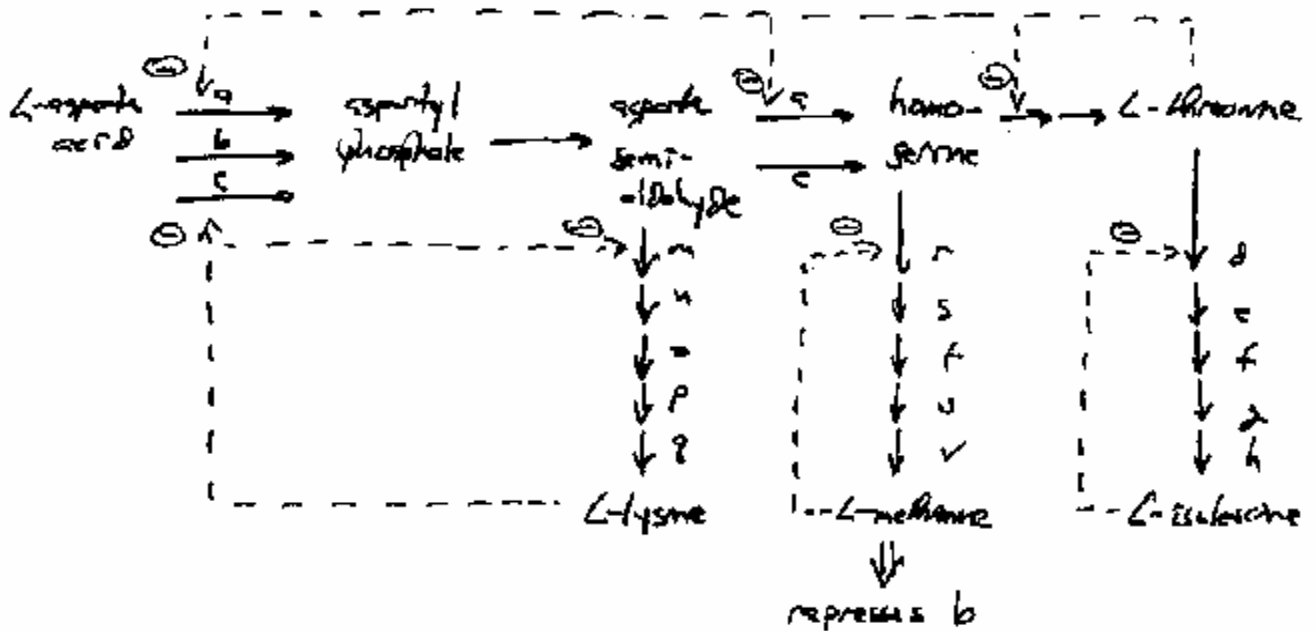 a
L-asparta
acid
aspartyl
phosphate
b
c
asparta
semi-
aldehyde
homo-
serine
L-threonine
m
n
o
p
q
L-lysine
r
s
t
u
v
L-methionine
represses b
d
e
f
g
h
L-isoleucine